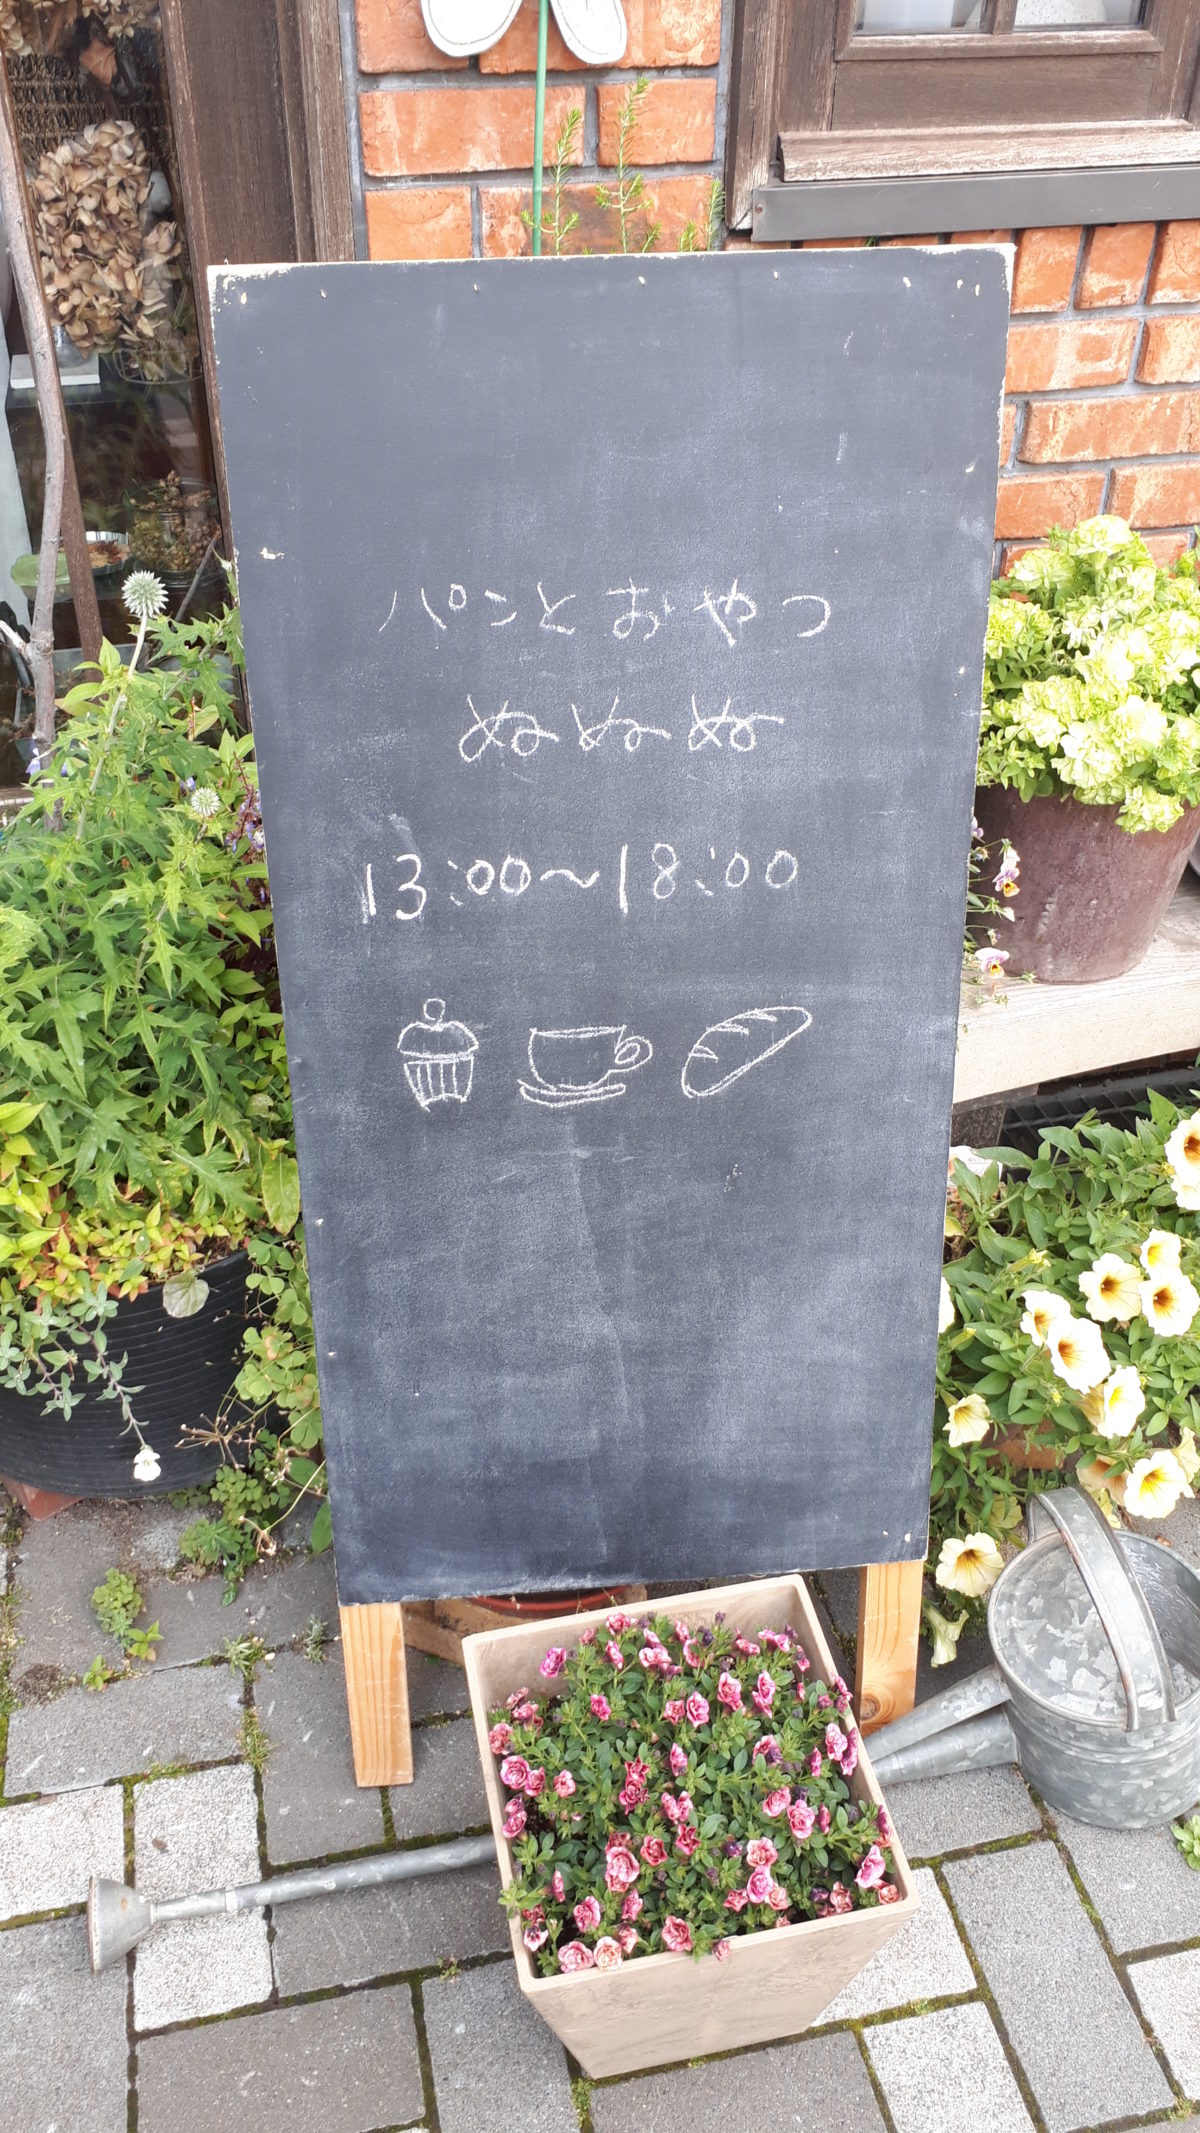 パンとおやつ
ぬぬぬ
13:00〜18:00